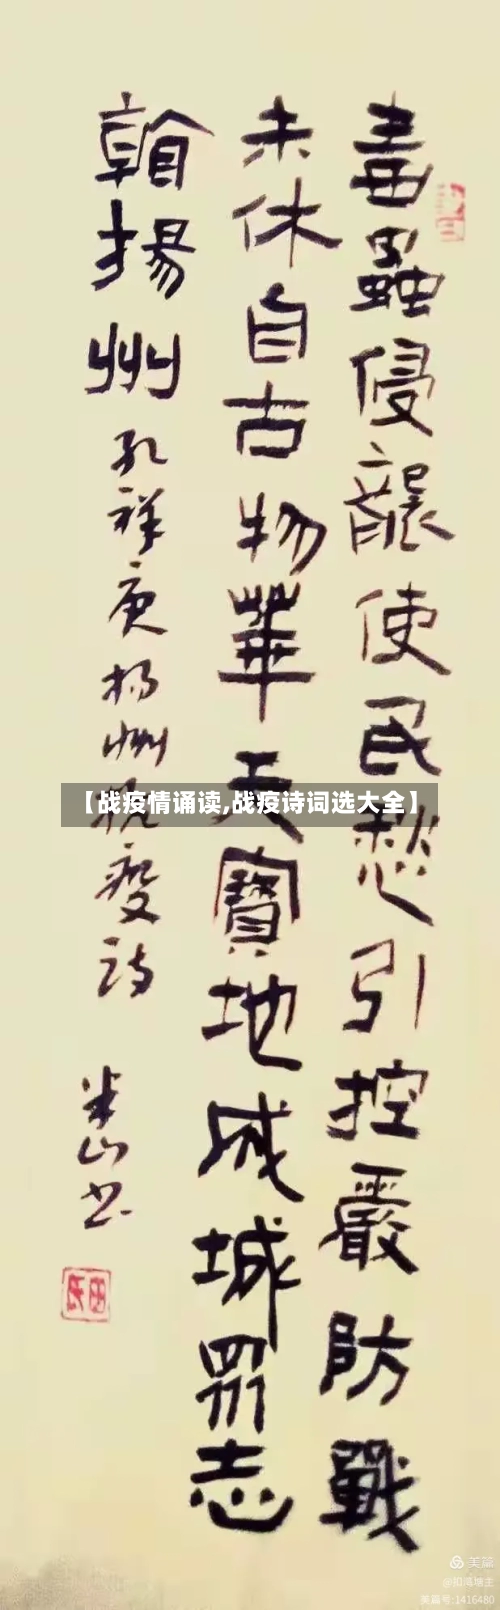 毒蟲侵襲使民愁引控嚴防戰
未休自古物華天寶地成城眾志
翰揚州
孔祥庚揚州抗疫詩
米山书
【战疫情诵读,战疫诗词选大全】
美篇
美篇号:1416480